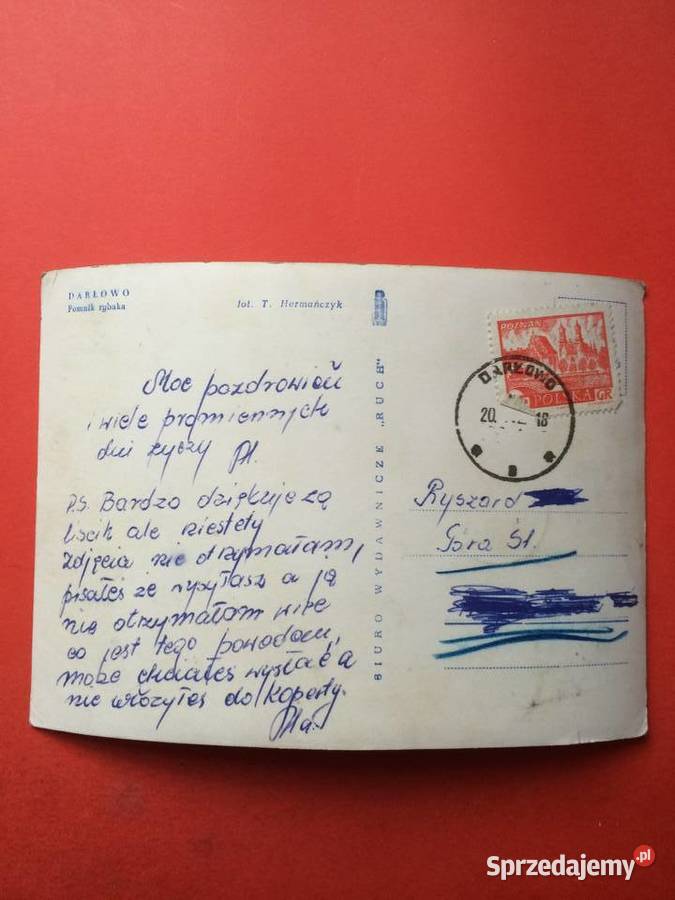 DARŁOWO
Pomnik rybaka
fot. T. Hermańczyk
Moc pozdrowień
i wiele promiennych
dni życzy
P.S. Bardzo dziękuję za
liścik ale niestety
zdjęcia nie otrzymałam,
pisałeś że wysyłasz a ja
nie otrzymałam więc
co jest tego powodem,
może chciałeś wysłać a
nie włożyłeś do koperty.
BIURO WYDAWNICZE „RUCH"
POZNAŃ
POLSKA
GR
DARŁOWO
20. 18
Ryszard
Góra Śl.
Sprzedajemy.pl